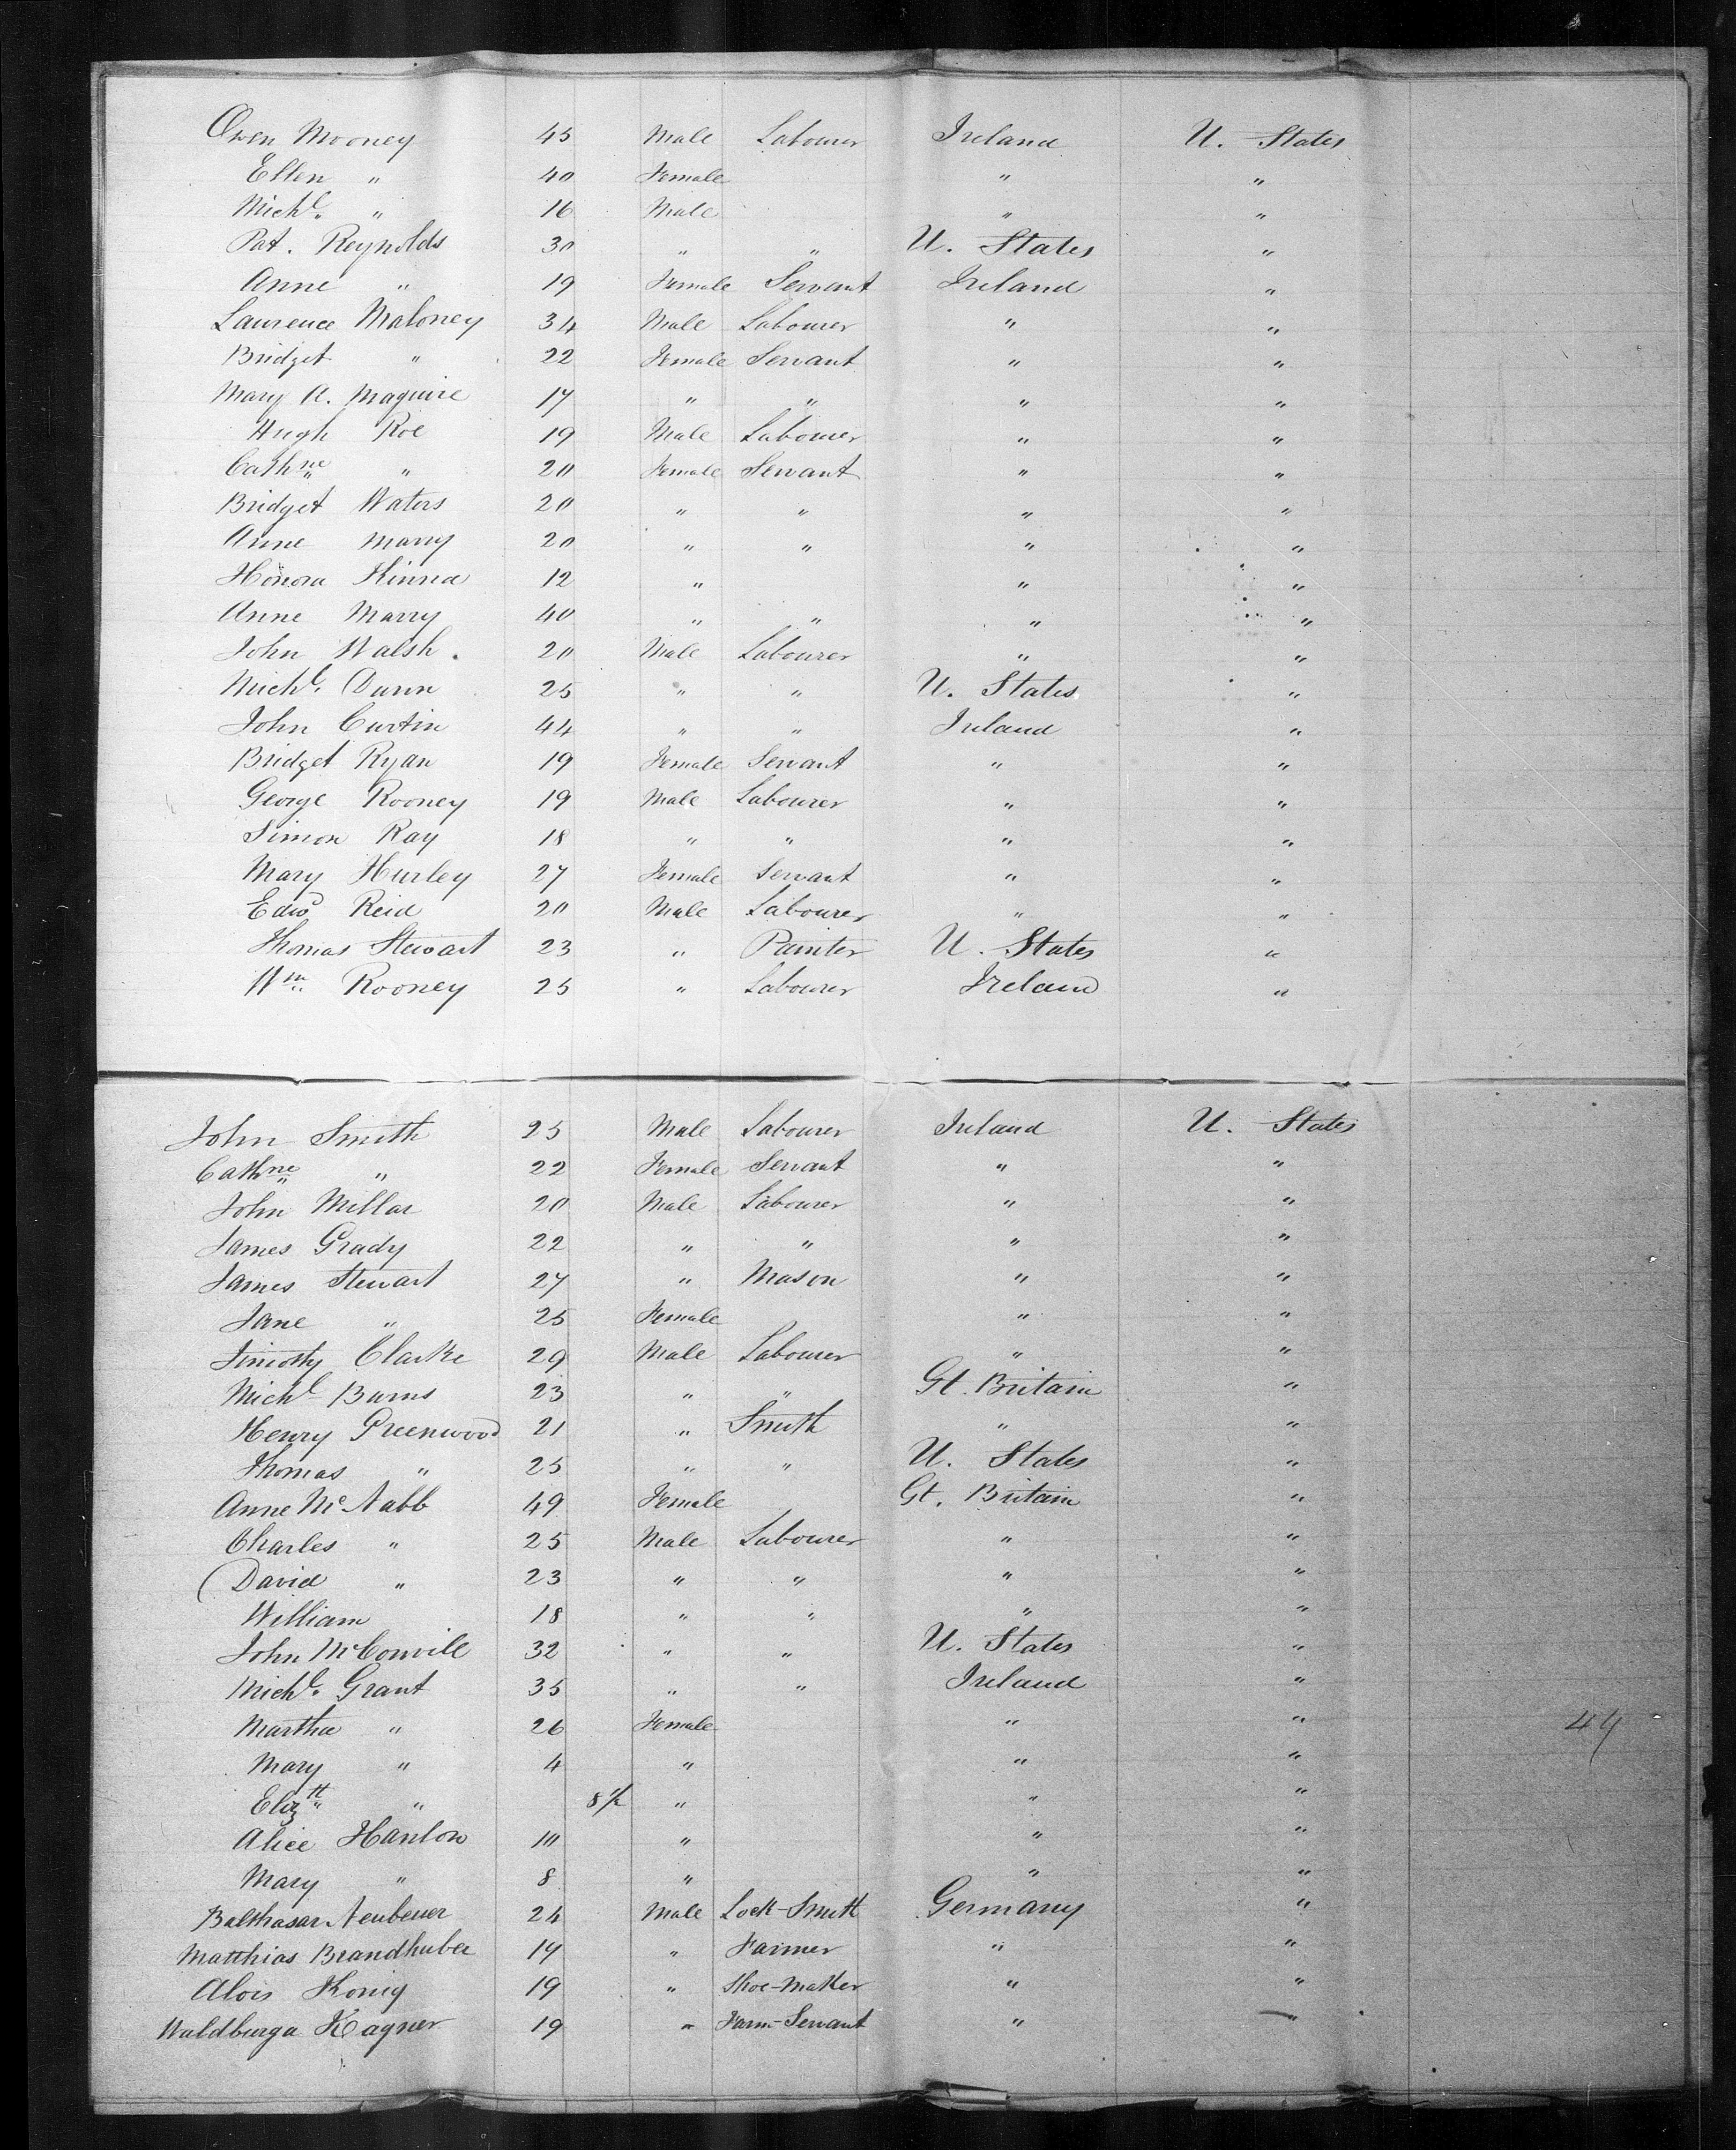 Owen Mooney 45 Male Labourer Ireland U. States
Ellen " 40 Female " "
Michl. " 16 Male " "
Pat. Reynolds 30 " " U. States "
Anne " 19 Female Servant Ireland "
Laurence Maloney 34 Male Labourer " "
Bridget " 22 Female Servant " "
Mary A. Maguire 17 " " " "
Hugh Roe 19 Male Labourer " "
Cathne " 20 Female Servant " "
Bridget Waters 20 " " " "
Anne Marry 20 " " " "
Honora Kinna 12 " " "
Anne Marry 40 " " " "
John Walsh. 20 Male Labourer " "
Michl. Dunn 25 " " U. States "
John Curtin 44 " " Ireland "
Bridget Ryan 19 Female Servant " "
George Rooney 19 Male Labourer " "
Simon Ray 18 " " " "
Mary Hurley 27 Female Servant " "
Edwd Reid 20 Male Labourer " "
Thomas Stewart 23 " Painter U. States "
Wm Rooney 25 " Labourer Ireland "
John Smith 25 Male Labourer Ireland U. States
Cathne " 22 Female Servant " "
John Millar 20 Male Labourer " "
James Grady 22 " " " "
James Stewart 27 " Mason " "
Jane " 25 Female " "
Timothy Clarke 29 Male Labourer " "
Michl Burns 23 " " Gt. Britain "
Henry Greenwood 21 " Smith " "
Thomas " 25 " " U. States "
Anne McNabb 49 Female Gt. Britain "
Charles " 25 Male Labourer " "
David " 23 " " " "
William 18 " " " "
John McConvile 32 " " U. States "
Michl. Grant 35 " " Ireland "
Martha " 26 Female " "
Mary " 4 " " "
Elizth " 8/ " " "
Alice Hanlon 10 " " "
Mary " 8 " " "
Balthasar Neubeuer 24 Male Lock-Smith Germany "
Matthias Brandhuber 17 " Farmer " "
Alois Konig 19 " Shoe-Maker " "
Waldburga Kagner 19 " Farm-Servant " "